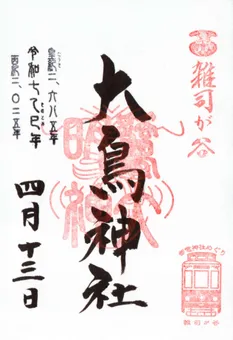 雑司が谷
大鳥神社
皇紀二、六八五年
令和七乙巳年
西暦二、〇二五年
四月十三日
雑司が谷